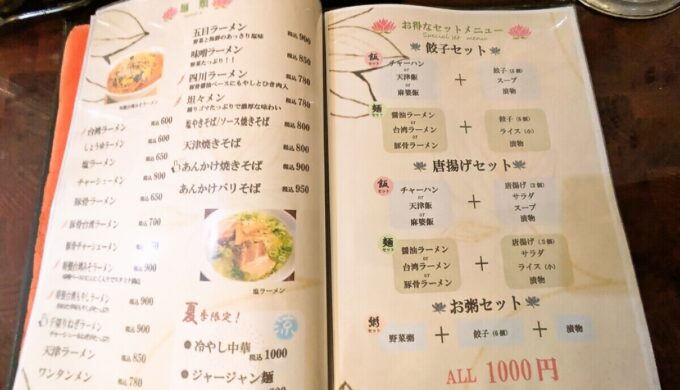 麺類
五目ラーメン 税込 900
野菜と海鮮のあっさり塩味
味噌ラーメン 税込 850
野菜たっぷり!!
四川ラーメン 税込 780
豚骨醤油ベースにもやしとひき肉入
担々メン 税込 780
練りゴマたっぷりで濃厚な味わい
塩やきそば/ソース焼きそば 税込 800
天津焼きそば 税込 800
あんかけ焼きそば 税込 900
あんかけバリそば 税込 950
台湾ラーメン 税込 600
しょうゆラーメン 税込 600
塩ラーメン 税込 650
チャーシューメン 税込 900
豚骨ラーメン 税込 650
豚骨台湾ラーメン 税込 700
豚骨チャーシューメン 税込 950
特製台湾みそラーメン 税込 900
特製台湾もやしラーメン 税込 900
手切りねぎラーメン 税込 900
天津ラーメン 税込 850
ワンタンメン 税込 780
塩ラーメン
夏季限定!
涼
冷やし中華 税込 1000
ジャージャン麺
お得なセットメニュー
Special set menu
餃子セット
飯セット
チャーハン
or
天津飯
or
麻婆飯
+
餃子(6個)
スープ
漬物
麺セット
醤油ラーメン
or
台湾ラーメン
or
豚骨ラーメン
+
餃子(6個)
ライス(小)
漬物
唐揚げセット
飯セット
チャーハン
or
天津飯
or
麻婆飯
+
唐揚げ(3個)
サラダ
スープ
漬物
麺セット
醤油ラーメン
or
台湾ラーメン
or
豚骨ラーメン
+
唐揚げ(3個)
サラダ
ライス(小)
漬物
お粥セット
粥セット
野菜粥 + 餃子(6個) + 漬物
ALL 1000円